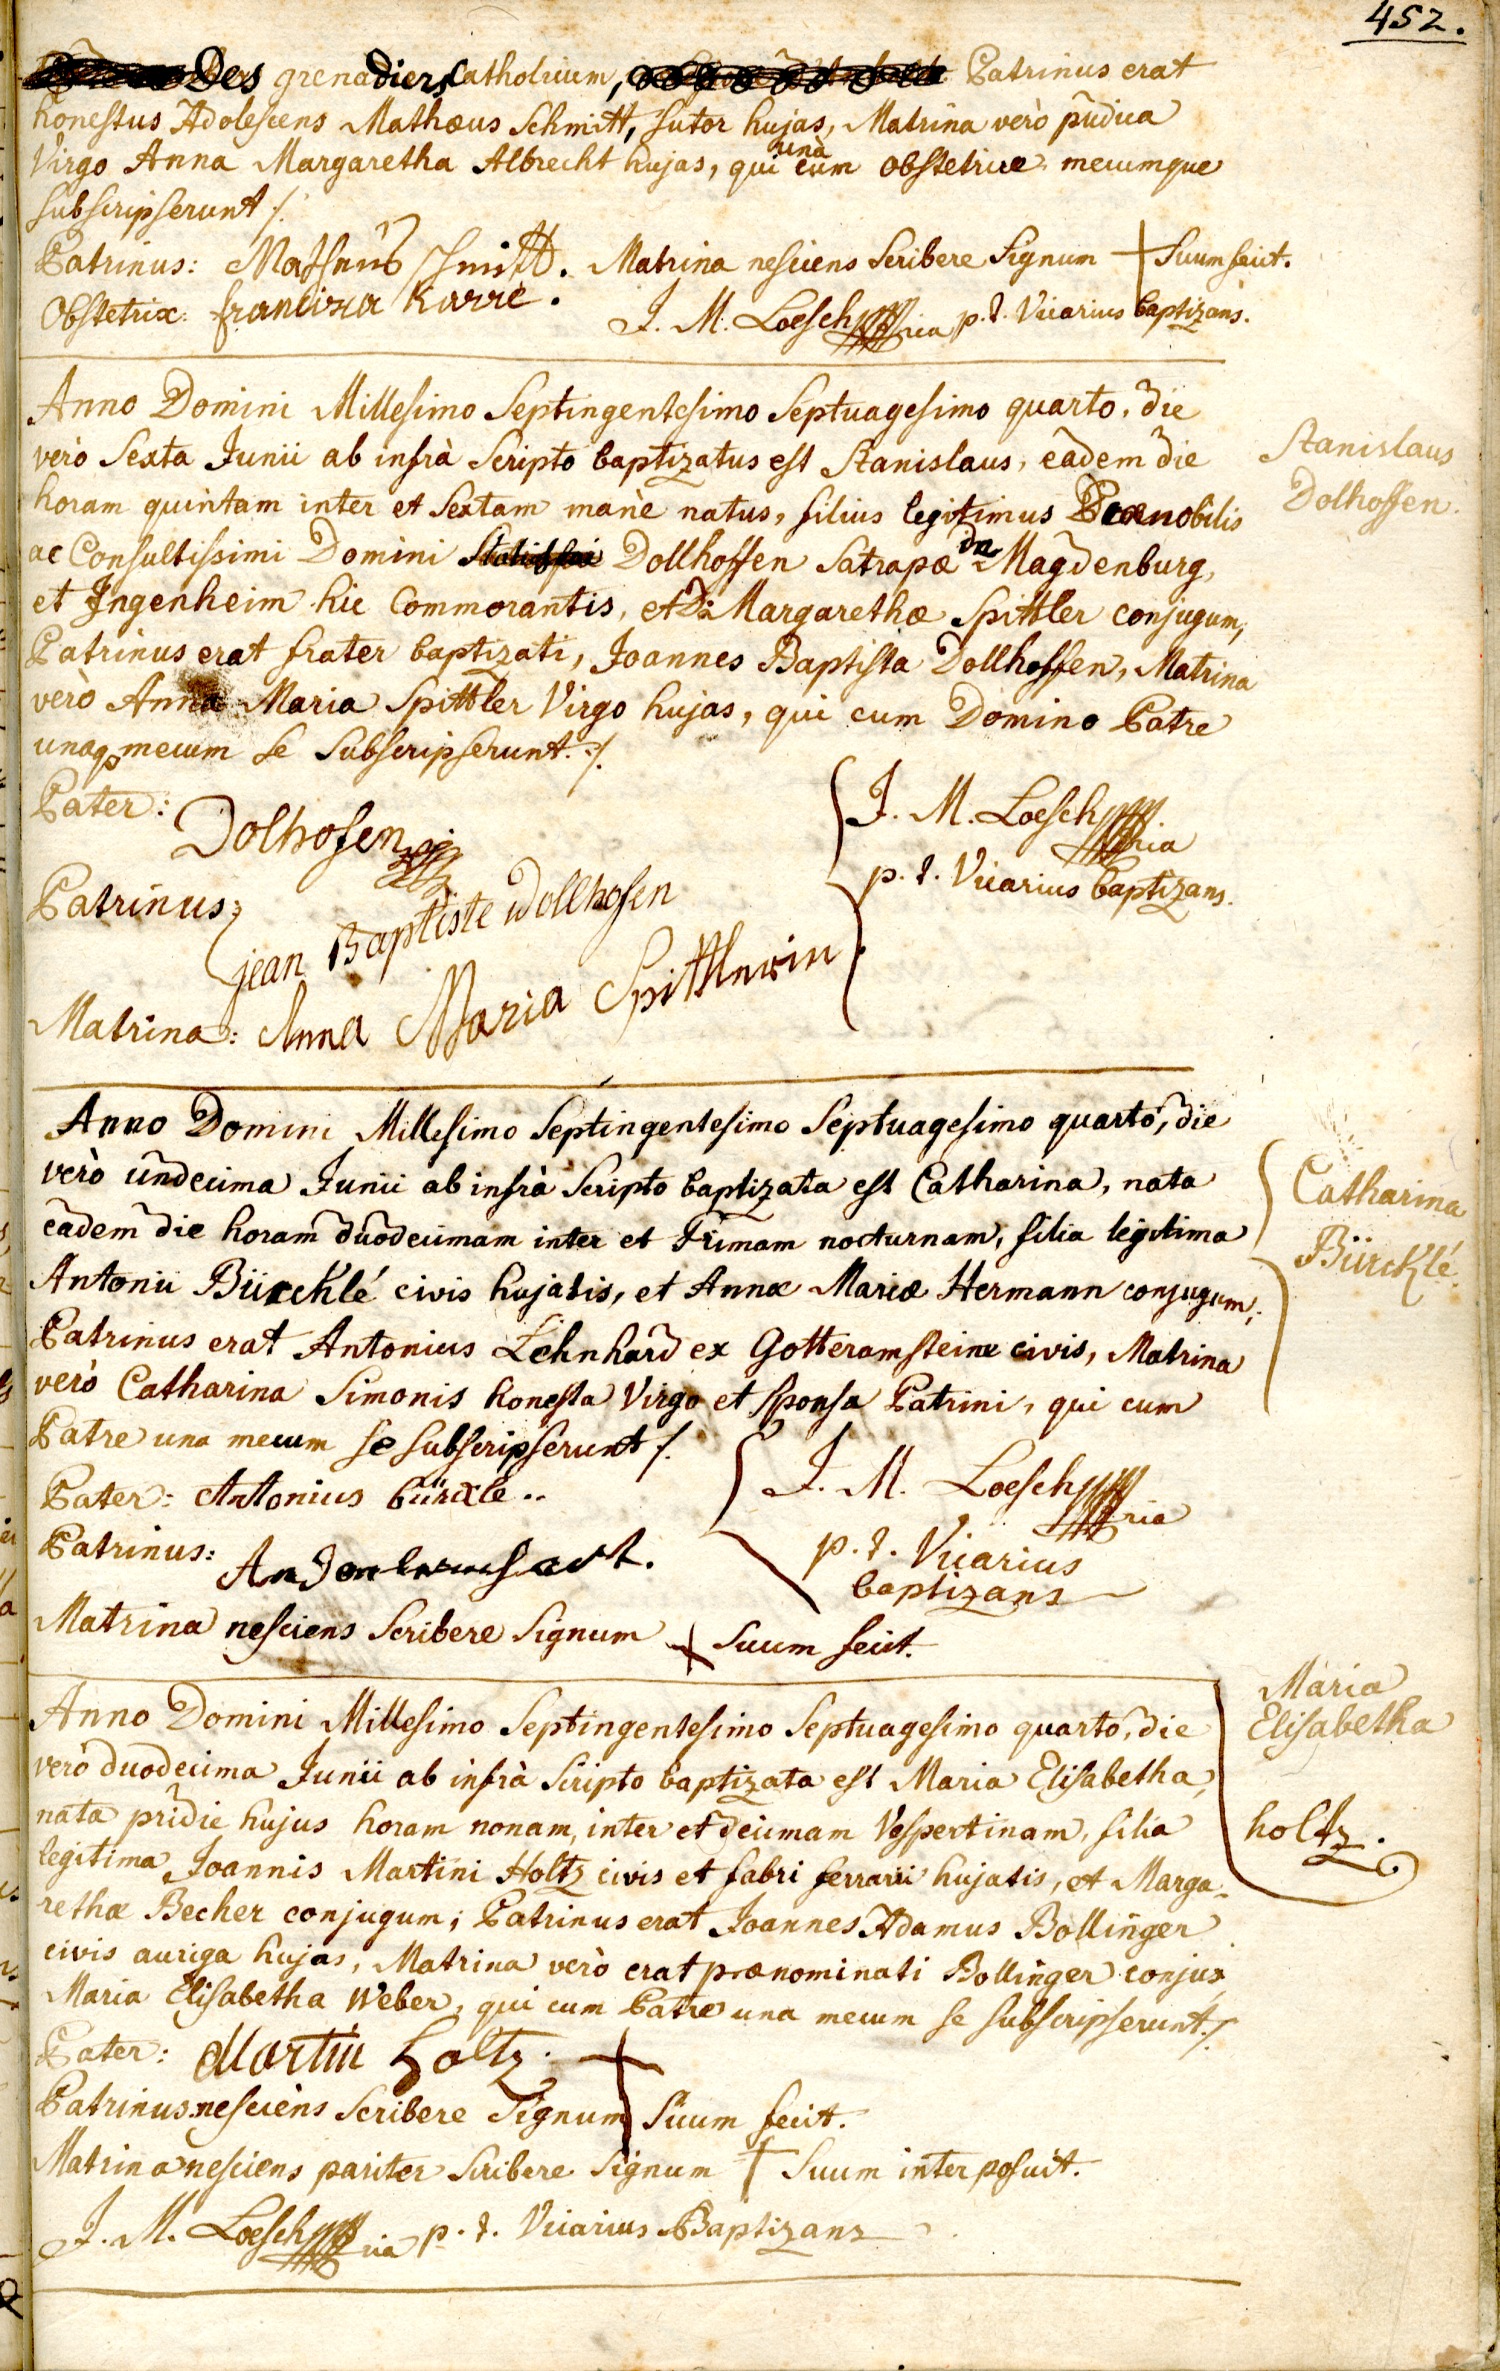 452.
Des grenadiers Catholicum, Patrinus erat
honestus Adolescens Mathæus Schmitt, sutor hujas, Matrina verò pudica
Virgo Anna Margaretha Albrecht hujas, qui unà cum obstetrice mecumque
subscripserunt /.
Patrinus: Matheus Schmitt. Matrina nesciens scribere signum + suum fecit.
Obstetrix: francixa Karre. J. M. Loesch mpria p.t. Vicarius baptizans.
Anno Domini Millesimo Septingentesimo Septuagesimo quarto, die
verò Sexta Junii ab infrà scripto baptizatus est Stanislaus, eadem die
horam quintam inter et sextam manè natus, filius legitimus Prænobilis
ac Consultissimi Domini Dollhoffen Satrapæ in Magdenburg,
et Ingenheim hic Commorantis, et Dæ Margarethæ Spittler conjugum,
Patrinus erat frater baptizati, Joannes Baptista Dollhoffen, Matrina
verò Anna Maria Spittler Virgo hujas, qui cum Domino Patre
unaq mecum se subscripserunt. /.
Stanislaus
Dolhoffen.
Pater: Dolhofen
Patrinus: jean Baptiste Dollhofen
Matrina: Anna Maria Spittlerin
J. M. Loesch mpria
p.t. Vicarius baptizans.
Anno Domini Millesimo Septingentesimo Septuagesimo quarto, die
verò undecima Junii ab infrà scripto baptizata est Catharina, nata
eadem die horam duodecimam inter et Primam nocturnam, filia legitima
Antonii Bürcklé civis hujatis, et Annæ Mariæ Hermann conjugum;
Patrinus erat Antonius Lehnhard ex Gotteramsteine civis, Matrina
verò Catharina Simonis honesta Virgo et sponsa Patrini, qui cum
Patre una mecum se subscripserunt /.
Catharina
Bürcklé.
Pater: Antonius bürcxle..
Patrinus:
Matrina nesciens scribere signum + suum fecit.
J. M. Loesch mpria
p.t. Vicarius
baptizans
Anno Domini Millesimo Septingentesimo Septuagesimo quarto, die
verò duodecima Junii ab infrà scripto baptizata est Maria Elisabetha,
nata pridie hujus horam nonam, inter et decimam Vespertinam, filia
legitima Joannis Martini Holtz civis et fabri ferrarii hujatis, et Marga-
rethæ Becher conjugum; Patrinus erat Joannes Adamus Bollinger
civis auriga hujas, Matrina verò erat prænominati Bollinger conjux
Maria Elisabetha Weber, qui cum Patre una mecum se subscripserunt. /.
Maria
Elisabetha
holtz.
Pater: Martin Holtz.
Patrinus nesciens scribere signum + suum fecit.
Matrina nesciens pariter scribere signum + suum interposuit.
J. M. Loesch mpria p.t. Vicarius Baptizans